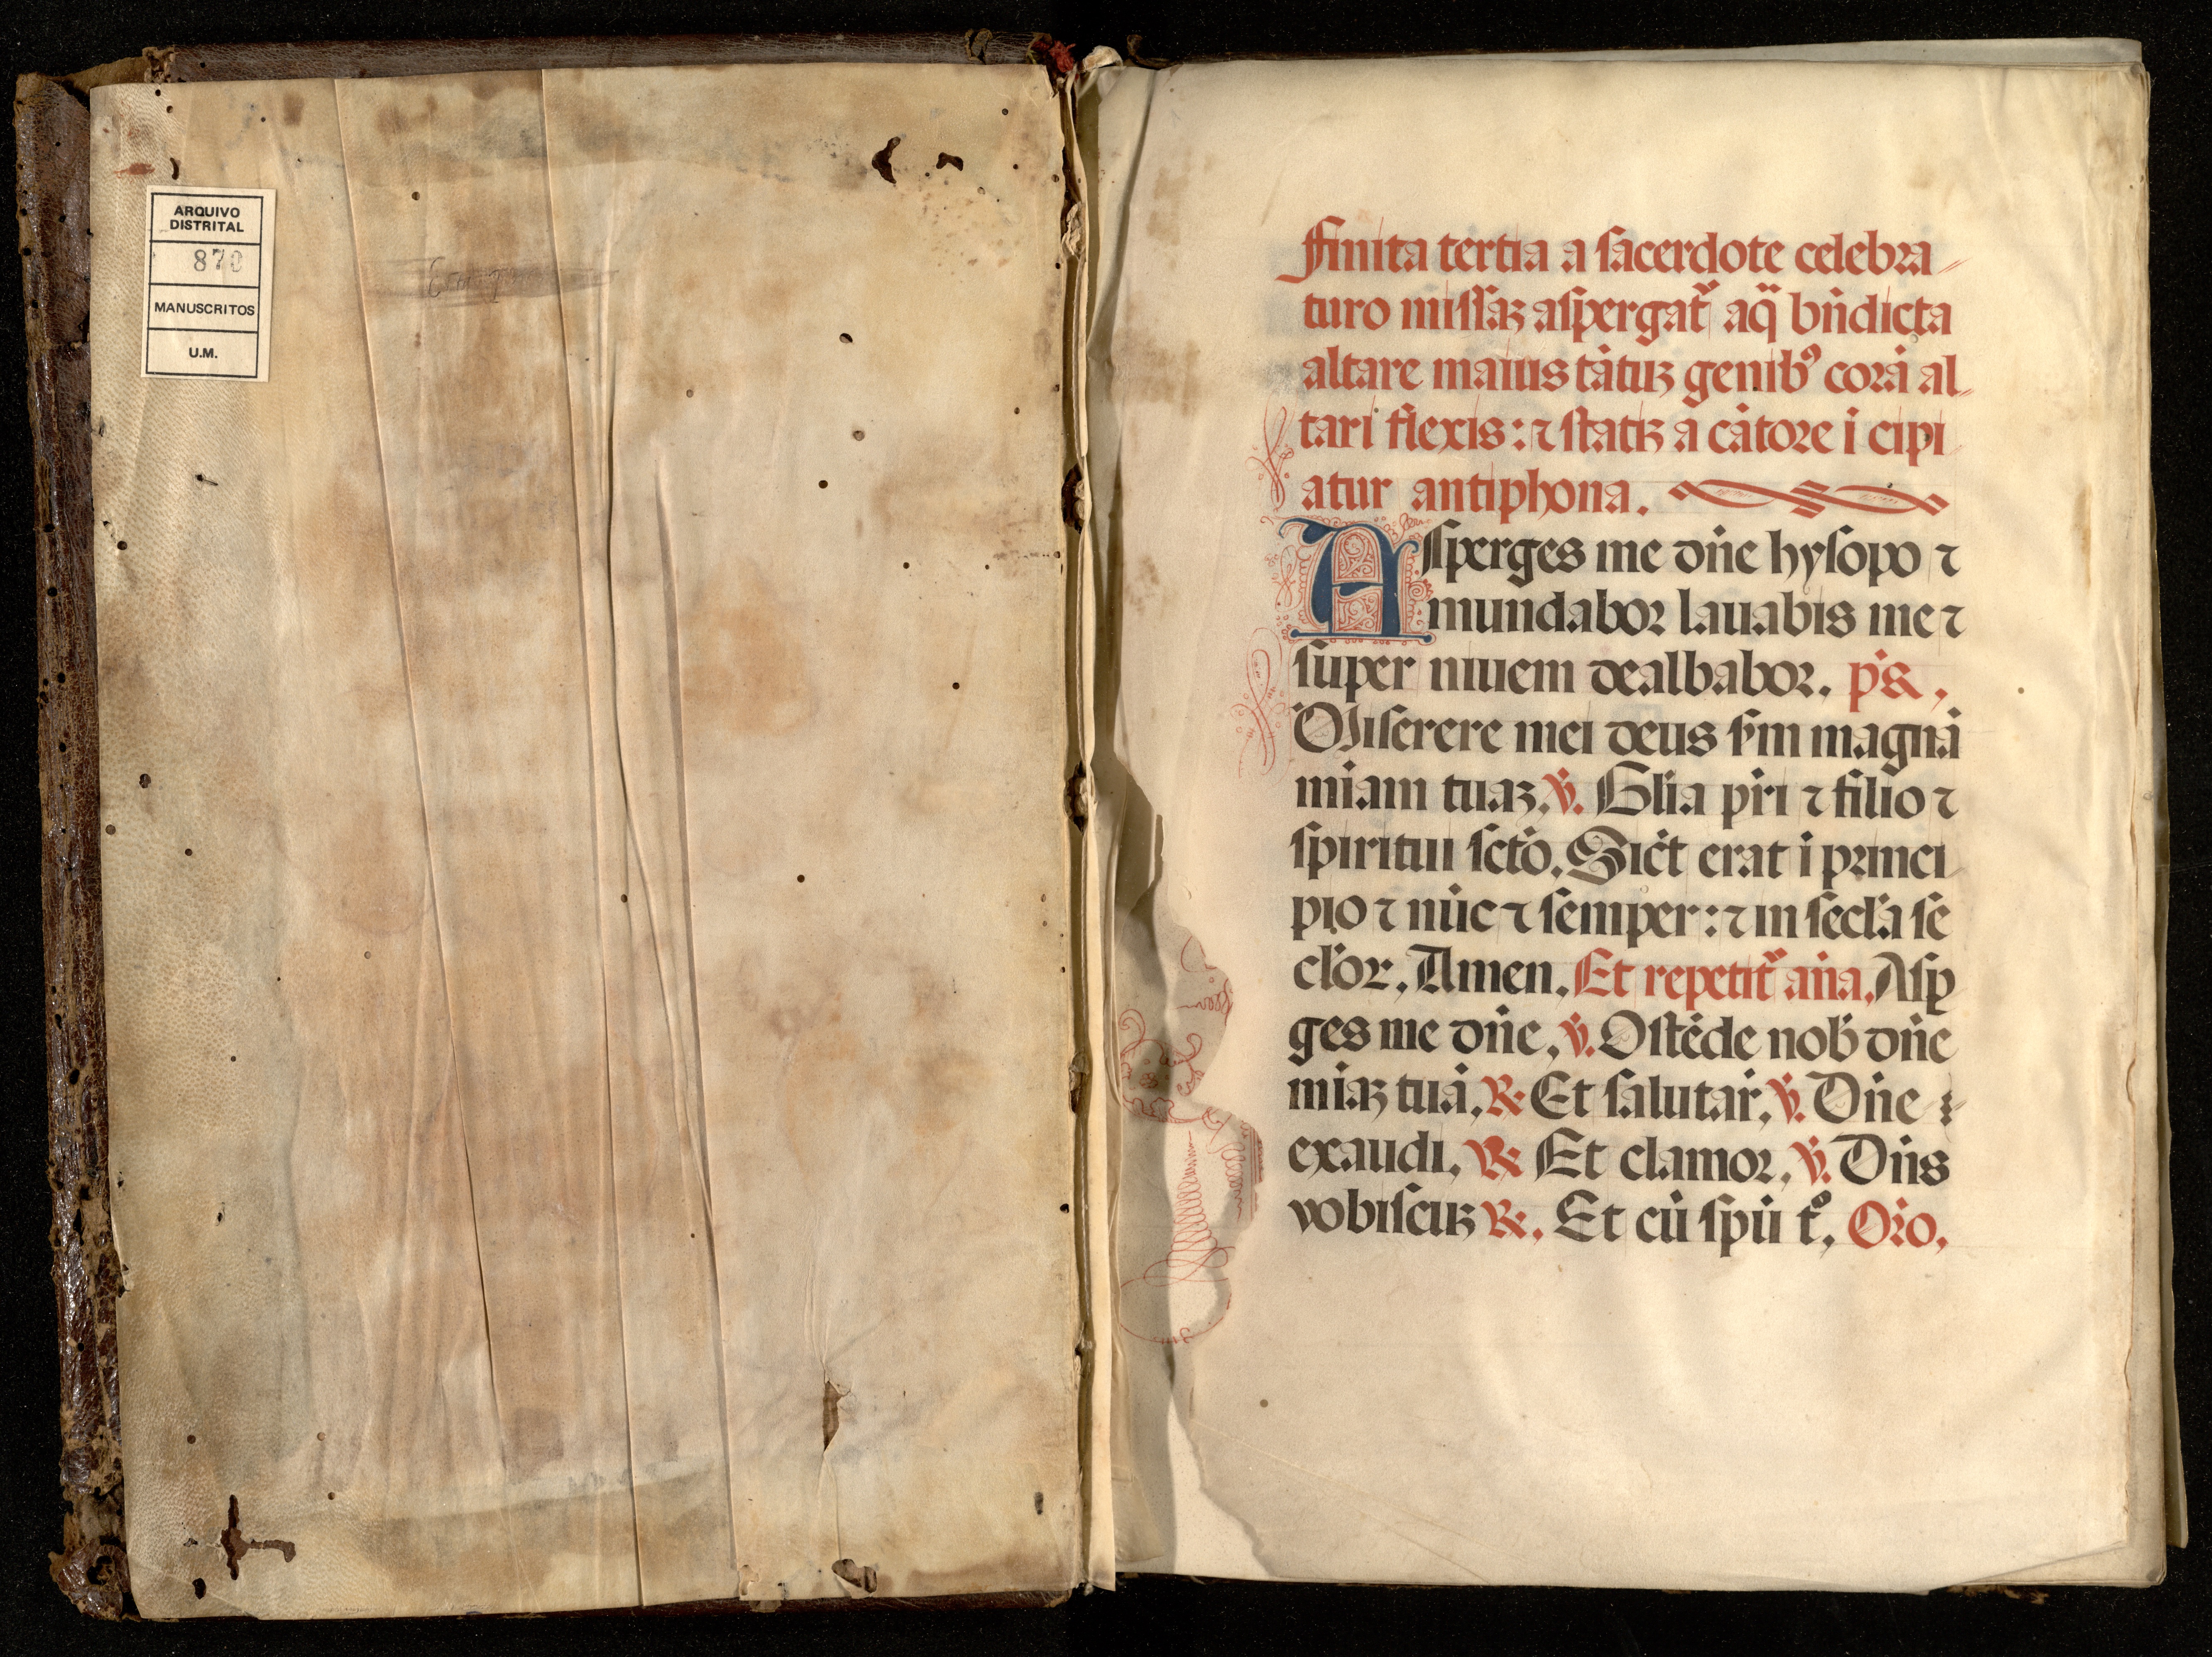 ARQUIVO
DISTRITAL
870
MANUSCRITOS
U.M.
Finita tertia a sacerdote celebra
turo missaꝫ aspergat᷑ aq̄ bn̄dicta
altare maius tātuꝫ genibꝰ corā al
tari flexis: ⁊ statiꝫ a cātore ī cipi
atur antiphona.
Asperges me dn̄e hysopo ⁊
mundabor lauabis me ⁊
super niuem dealbabor. p̄s.
Miserere mei deus sm̄ magnā
mīam tuaꝫ. ℣. Glīa pr̄i ⁊ filio ⁊
spiritui sctō. Sic̄t erat ī princi
pio ⁊ nūc ⁊ semper: ⁊ in secl̄a se
cl̄or. Amen. Et repetit᷑ an̄a. Asꝑ
ges me dn̄e. ℣. Ostēde nob̄ dn̄e
mīaꝫ tuā. ℟ Et salutar̄. ℣. Dn̄e
exaudi. ℟ Et clamor. ℣. Dn̄s
vobiscuꝫ ℟. Et cū spū tͦ. Or̄o.